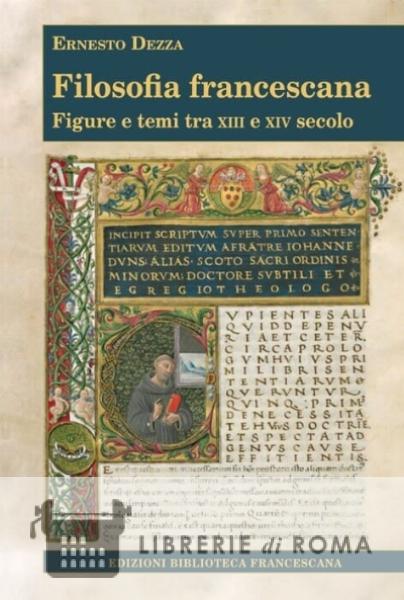 ERNESTO DEZZA
Filosofia francescana
Figure e temi tra XIII e XIV secolo
INCIPIT SCRIPTVM SVPER PRIMO SENTEN
TIARVM EDITVM AFRATRE IOHANNE
DVNS: ALIAS: SCOTO SACRI ORDINIS
MINORVM: DOCTORE SVBTILI ET
EGREGIO THEOLOGO
VPIENTES ALI
QVID DE PENV
RIA ET CETER
CIRCA PROLO
GVM HVIVS PRI
MI LIBRI SEN
TENTIARVM
QVERVNTVR
QVINQ: PRIM
DE NECESSITA
TE HVIVS DOCTRIE
ET SPECTAT AD
GENVS CAVSE
EFFITENTIS
LIBRERIE di ROMA
EDIZIONI BIBLIOTECA FRANCESCANA